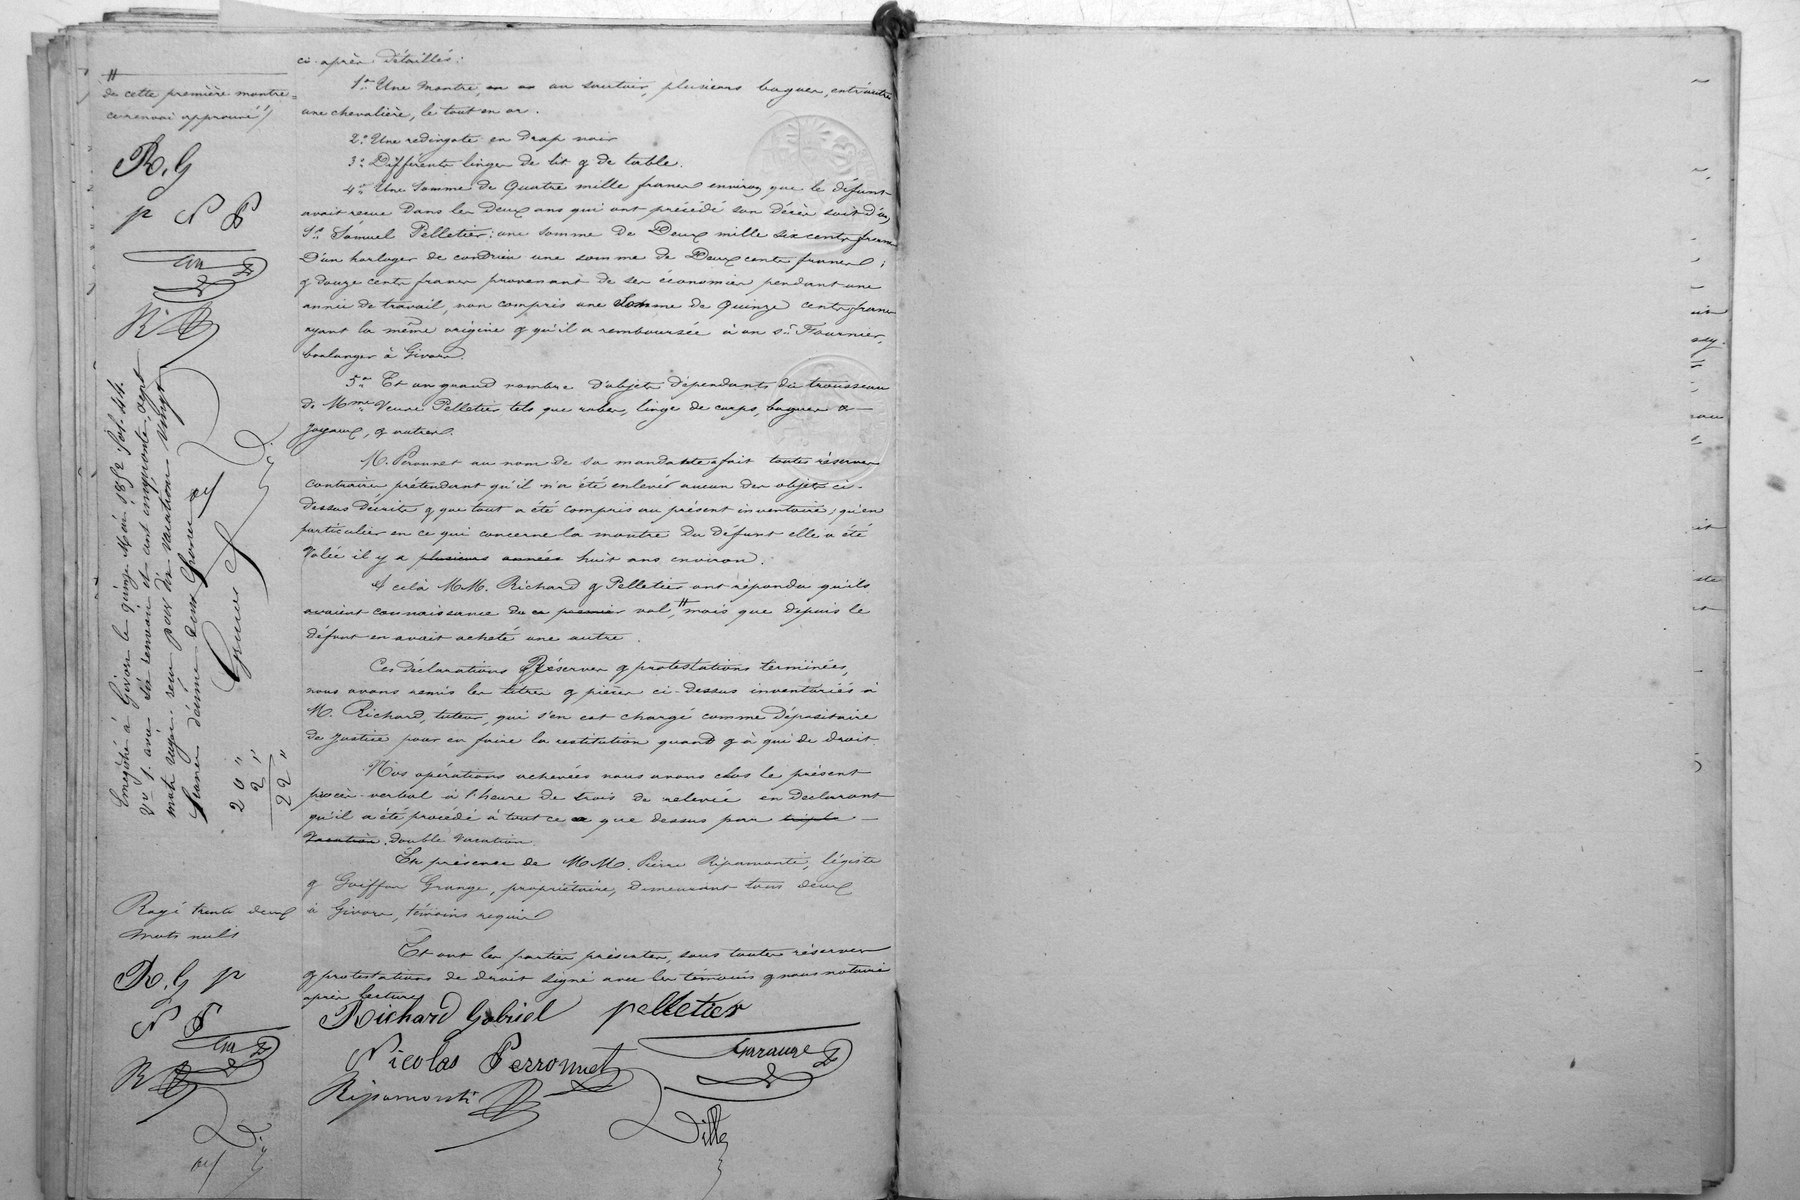 ci-après détaillés :
1° Une montre, un sautoir, plusieurs bagues, entr'autres
une chevalière, le tout en or.
2° Une redingote en drap noir
3° Différents linges de lit & de table.
4° Une somme de Quatre mille francs environ que le défunt
avait reçue dans les deux ans qui ont précédé son décès soit d'un
Sr Samuel Pelletier : une somme de Deux mille six cents francs
D'un horloger de condrieu une somme de Deux cents francs ;
& douze cents francs provenant de ses économies pendant une
année de travail, non compris une Somme de Quinze cents francs
ayant la même origine & qu'il a remboursée à un sr Fournier,
boulanger à Givors.
5° Et un grand nombre d'objets dépendants du trousseau
de Mme Veuve Pelletier tels que robes, linge de corps, bagues &
joyaux, & autres.
M. Peronnet au nom de sa mandante a fait toutes réserves
contraires prétendant qu'il n'a été enlevé aucun des objets ci-
dessus décrits & que tout a été compris au présent inventaire ; qu'en
particulier en ce qui concerne la montre du défunt elle a été
Volée il y a plusieurs années huit ans environ.
A celà MM. Richard & Pelletier ont répondu qu'ils
avaient connaissance du ce premier vol, # mais que depuis le
défunt en avait acheté une autre.
Ces déclarations Réserves & protestations terminées,
nous avons remis les titres & pièces ci-dessus inventoriés à
M. Richard, tuteur, qui s'en est chargé comme dépositaire
de Justice pour en faire la restitution quand & à qui de droit
Nos opérations achevées nous avons clos le présent
procès-verbal à l'heure de trois de relevée en déclarant
qu'il a été procédé à tout ce que dessus par triple
Vacation. double vacation.
En présence de MM. Pierre Ripamonti, légiste
& Goiffon Grange, propriétaire, demeurant tous deux
à Givors, témoins requis
Et ont les parties présentes, sous toutes réserves
& protestations de droit signé avec les témoins & nous notaire
après lecture
Richard Gabriel pelletier
Nicolas Perronnet
Ripamonti
#
de cette première montre
ce renvoi approuvé
R. G
p N P
R
Enregistré à Givors le quinze Mai 1852 fol. 44.
Vo
francs
20 "
2 "
22 "
Rayé trente deux
mots nuls
R. G p
N P
R